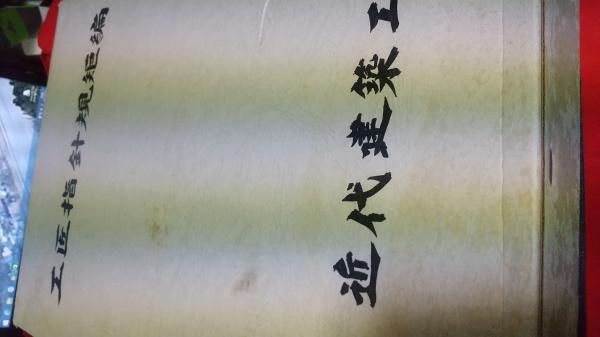 工匠指針規矩編
近代建築工